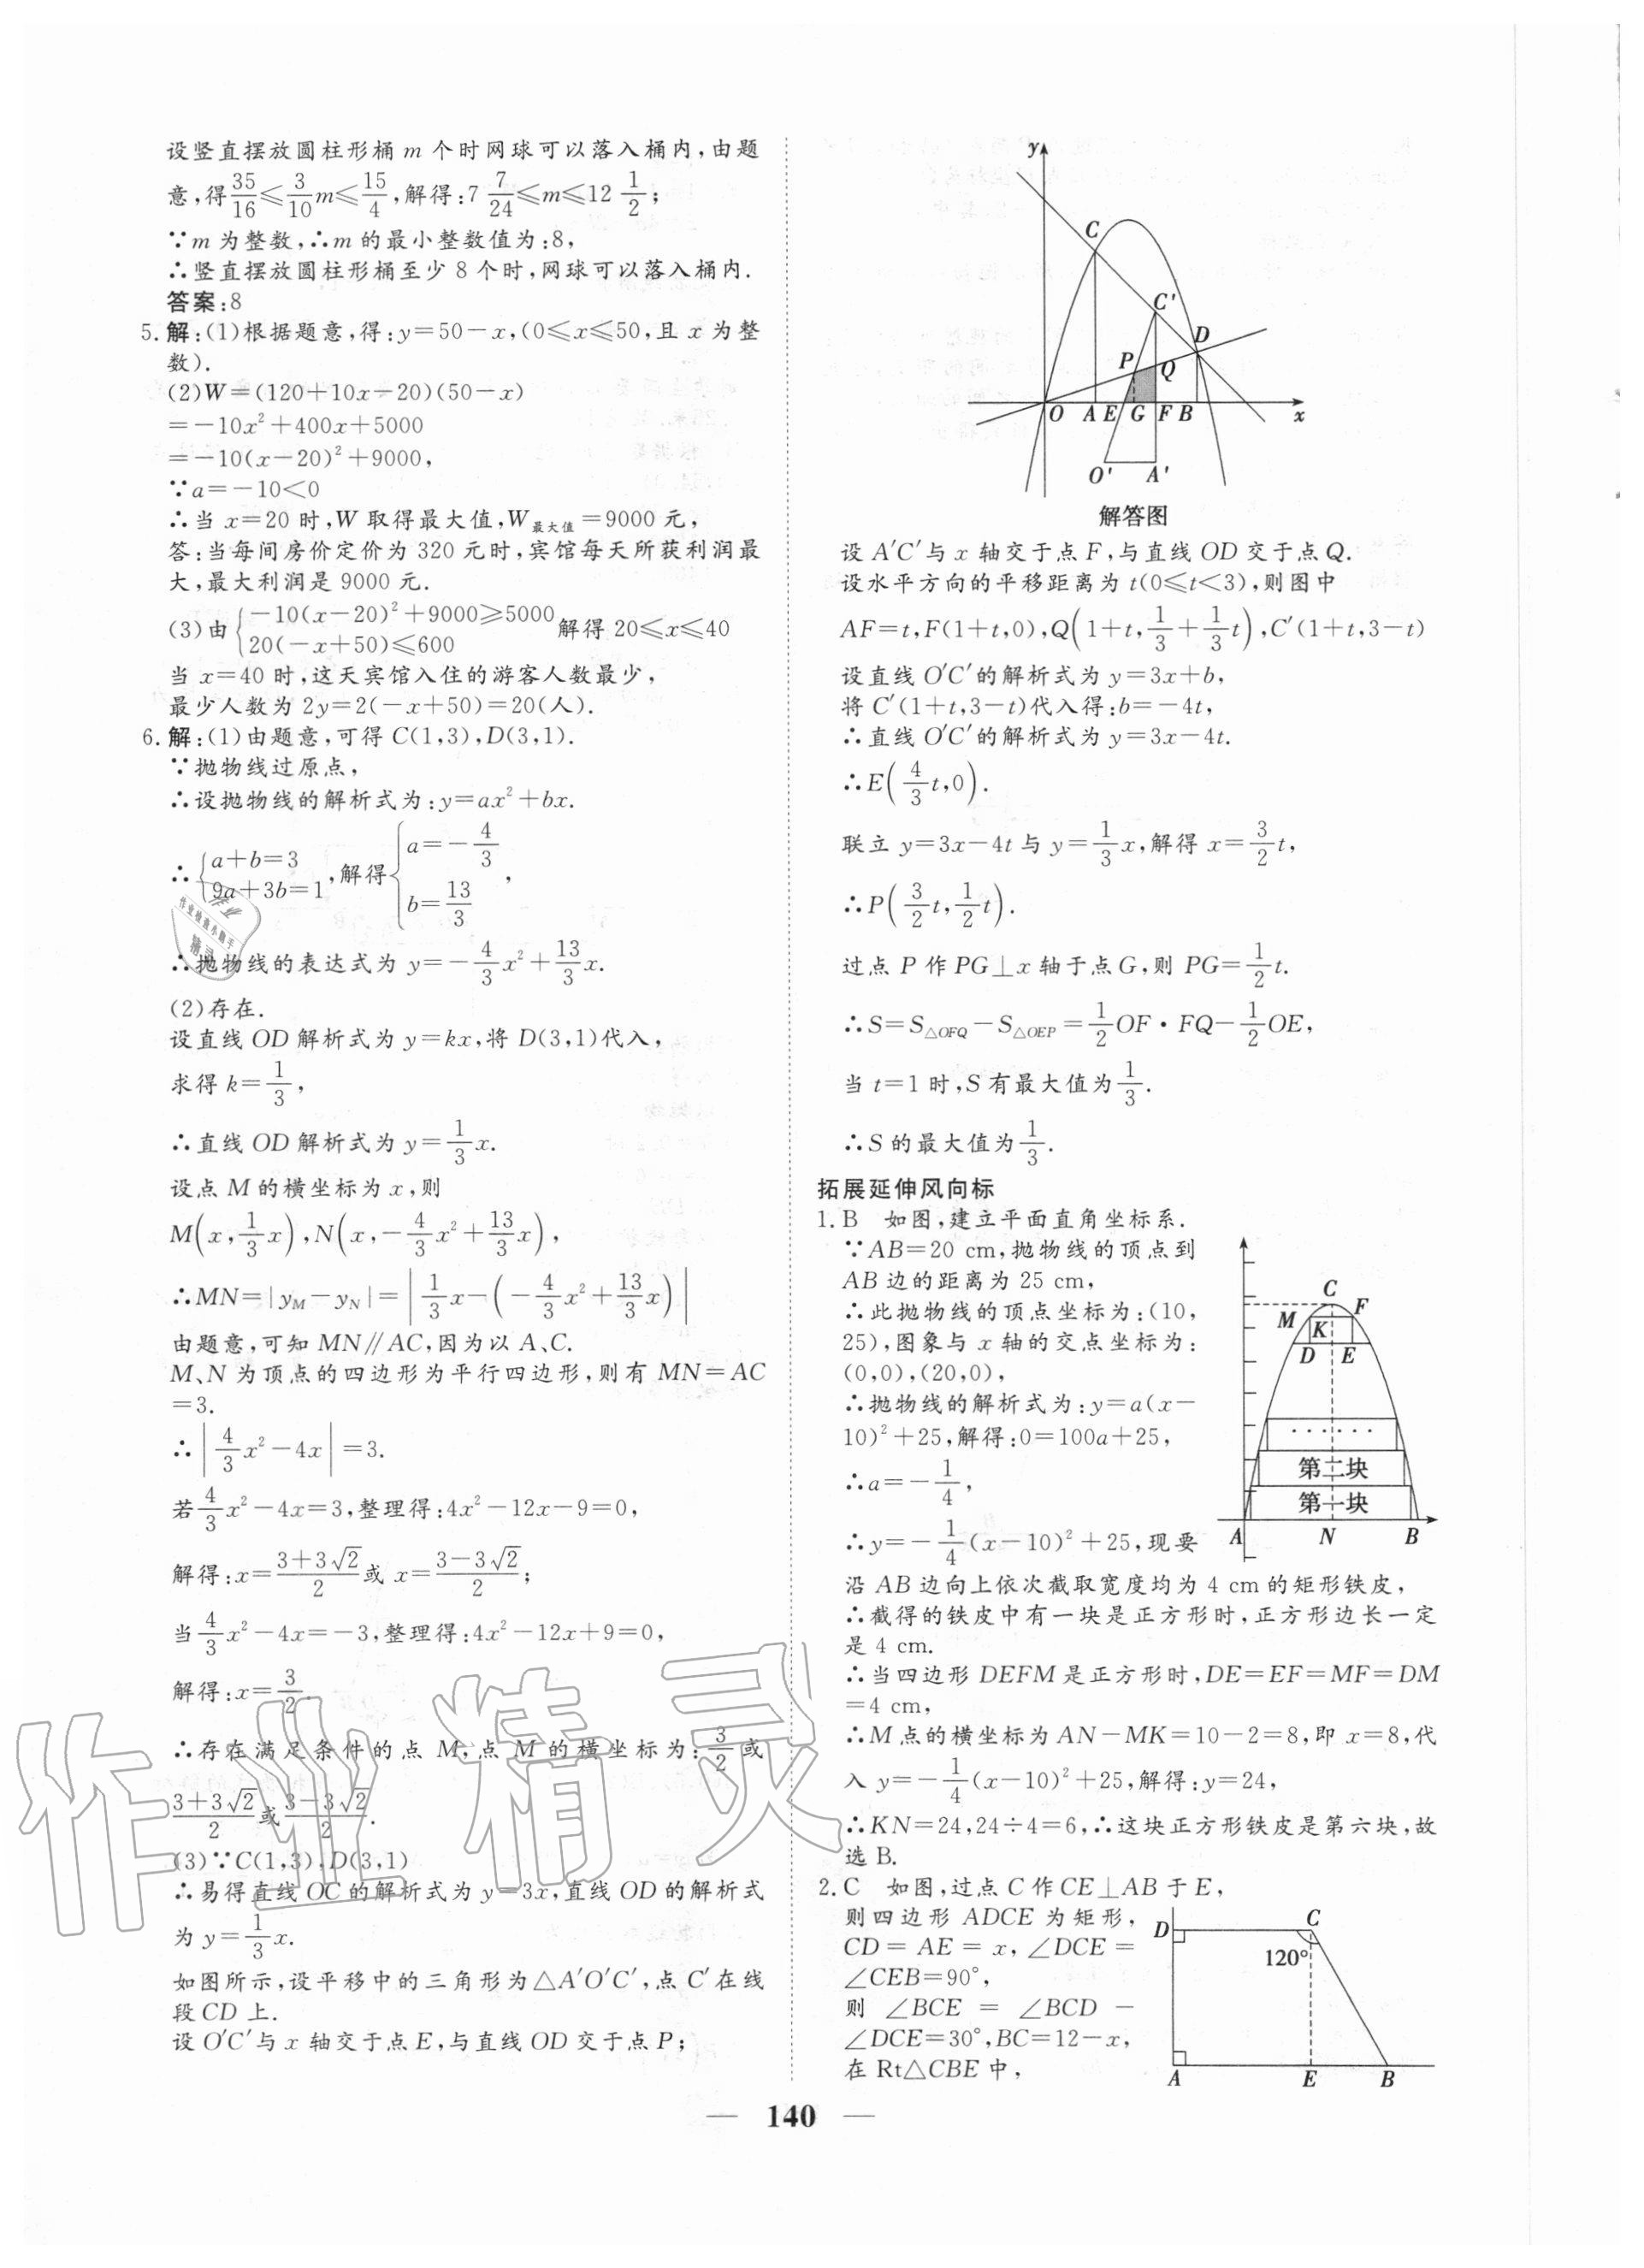 设竖直摆放圆柱形桶 m 个时网球可以落入桶内,由题
意,得35/16≤3/10m≤15/4,解得:7 7/24≤m≤12 1/2;
∵m 为整数,∴m 的最小整数值为:8,
∴竖直摆放圆柱形桶至少 8 个时,网球可以落入桶内.
答案:8
5.解:(1)根据题意,得:y=50-x,(0≤x≤50,且 x 为整
数).
(2)W=(120+10x-20)(50-x)
=-10x²+400x+5000
=-10(x-20)²+9000,
∵a=-10<0
∴当 x=20 时,W 取得最大值,W最大值=9000 元,
答:当每间房价定价为 320 元时,宾馆每天所获利润最
大,最大利润是 9000 元.
(3)由{-10(x-20)²+9000≥5000
20(-x+50)≤600 解得 20≤x≤40
当 x=40 时,这天宾馆入住的游客人数最少,
最少人数为 2y=2(-x+50)=20(人).
6.解:(1)由题意,可得 C(1,3),D(3,1).
∵抛物线过原点,
∴设抛物线的解析式为:y=ax²+bx.
∴{a+b=3
9a+3b=1,解得{a=-4/3
b=13/3,
∴抛物线的表达式为 y=-4/3x²+13/3x.
(2)存在.
设直线 OD 解析式为 y=kx,将 D(3,1)代入,
求得 k=1/3,
∴直线 OD 解析式为 y=1/3x.
设点 M 的横坐标为 x,则
M(x,1/3x),N(x,-4/3x²+13/3x),
∴MN=|yM-yN|=|1/3x-(-4/3x²+13/3x)|
由题意,可知 MN∥AC,因为以 A、C.
M、N 为顶点的四边形为平行四边形,则有 MN=AC
=3.
∴|4/3x²-4x|=3.
若4/3x²-4x=3,整理得:4x²-12x-9=0,
解得:x=(3+3√2)/2或 x=(3-3√2)/2;
当4/3x²-4x=-3,整理得:4x²-12x+9=0,
解得:x=3/2
∴存在满足条件的点 M,点 M 的横坐标为:3/2或
(3+3√2)/2或(3-3√2)/2.
(3)∵C(1,3),D(3,1)
∴易得直线 OC 的解析式为 y=3x,直线 OD 的解析式
为 y=1/3x.
如图所示,设平移中的三角形为△A′O′C′,点 C′在线
段 CD 上.
设 O′C′与 x 轴交于点 E,与直线 OD 交于点 P;
y
C
C′
D
P
Q
O A E G F B x
O′ A′
解答图
设 A′C′与 x 轴交于点 F,与直线 OD 交于点 Q.
设水平方向的平移距离为 t(0≤t<3),则图中
AF=t,F(1+t,0),Q(1+t,1/3+1/3t),C′(1+t,3-t)
设直线 O′C′的解析式为 y=3x+b,
将 C′(1+t,3-t)代入得:b=-4t,
∴直线 O′C′的解析式为 y=3x-4t.
∴E(4/3t,0).
联立 y=3x-4t 与 y=1/3x,解得 x=3/2t,
∴P(3/2t,1/2t).
过点 P 作 PG⊥x 轴于点 G,则 PG=1/2t.
∴S=S△OFQ-S△OEP=1/2OF·FQ-1/2OE,
当 t=1 时,S 有最大值为1/3.
∴S 的最大值为1/3.
拓展延伸风向标
1.B 如图,建立平面直角坐标系.
∵AB=20 cm,抛物线的顶点到
AB 边的距离为 25 cm,
∴此抛物线的顶点坐标为:(10,
25),图象与 x 轴的交点坐标为:
(0,0),(20,0),
∴抛物线的解析式为:y=a(x-
10)²+25,解得:0=100a+25,
∴a=-1/4,
∴y=-1/4(x-10)²+25,现要
沿 AB 边向上依次截取宽度均为 4 cm 的矩形铁皮,
∴截得的铁皮中有一块是正方形时,正方形边长一定
是 4 cm.
∴当四边形 DEFM 是正方形时,DE=EF=MF=DM
=4 cm,
∴M 点的横坐标为 AN-MK=10-2=8,即 x=8,代
入 y=-1/4(x-10)²+25,解得:y=24,
∴KN=24,24÷4=6,∴这块正方形铁皮是第六块,故
选 B.
C
M K F
D E
······
第二块
第一块
A N B
2.C 如图,过点 C 作 CE⊥AB 于 E,
则四边形 ADCE 为矩形,
CD=AE=x,∠DCE=
∠CEB=90°,
则 ∠BCE = ∠BCD -
∠DCE=30°,BC=12-x,
在 Rt△CBE 中,
D C
120°
A E B
— 140 —
作业精灵
作业
作业检查小助手
精灵